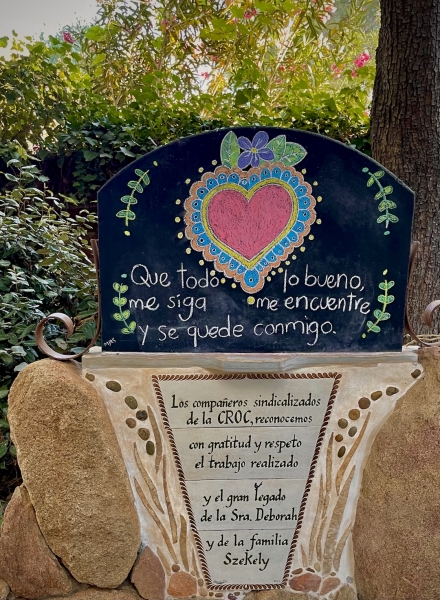 Que todo lo bueno,
me siga me encuentre
y se quede conmigo.
Los compañeros sindicalizados
de la CROC, reconocemos
con gratitud y respeto
el trabajo realizado
y el gran legado
de la Sra. Deborah
y de la familia
Szekely